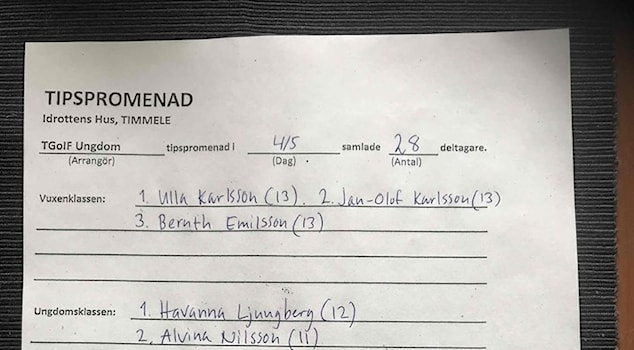 TIPSPROMENAD
Idrottens Hus, TIMMELE
TGoIF Ungdom tipspromenad i 4/5 samlade 28 deltagare.
(Arrangör) (Dag) (Antal)
Vuxenklassen: 1. Ulla Karlsson (13). 2. Jan-Olof Karlsson (13)
3. Bernth Emilsson (13)
Ungdomsklassen: 1. Havanna Ljungberg (12)
2. Alvina Nilsson (11)